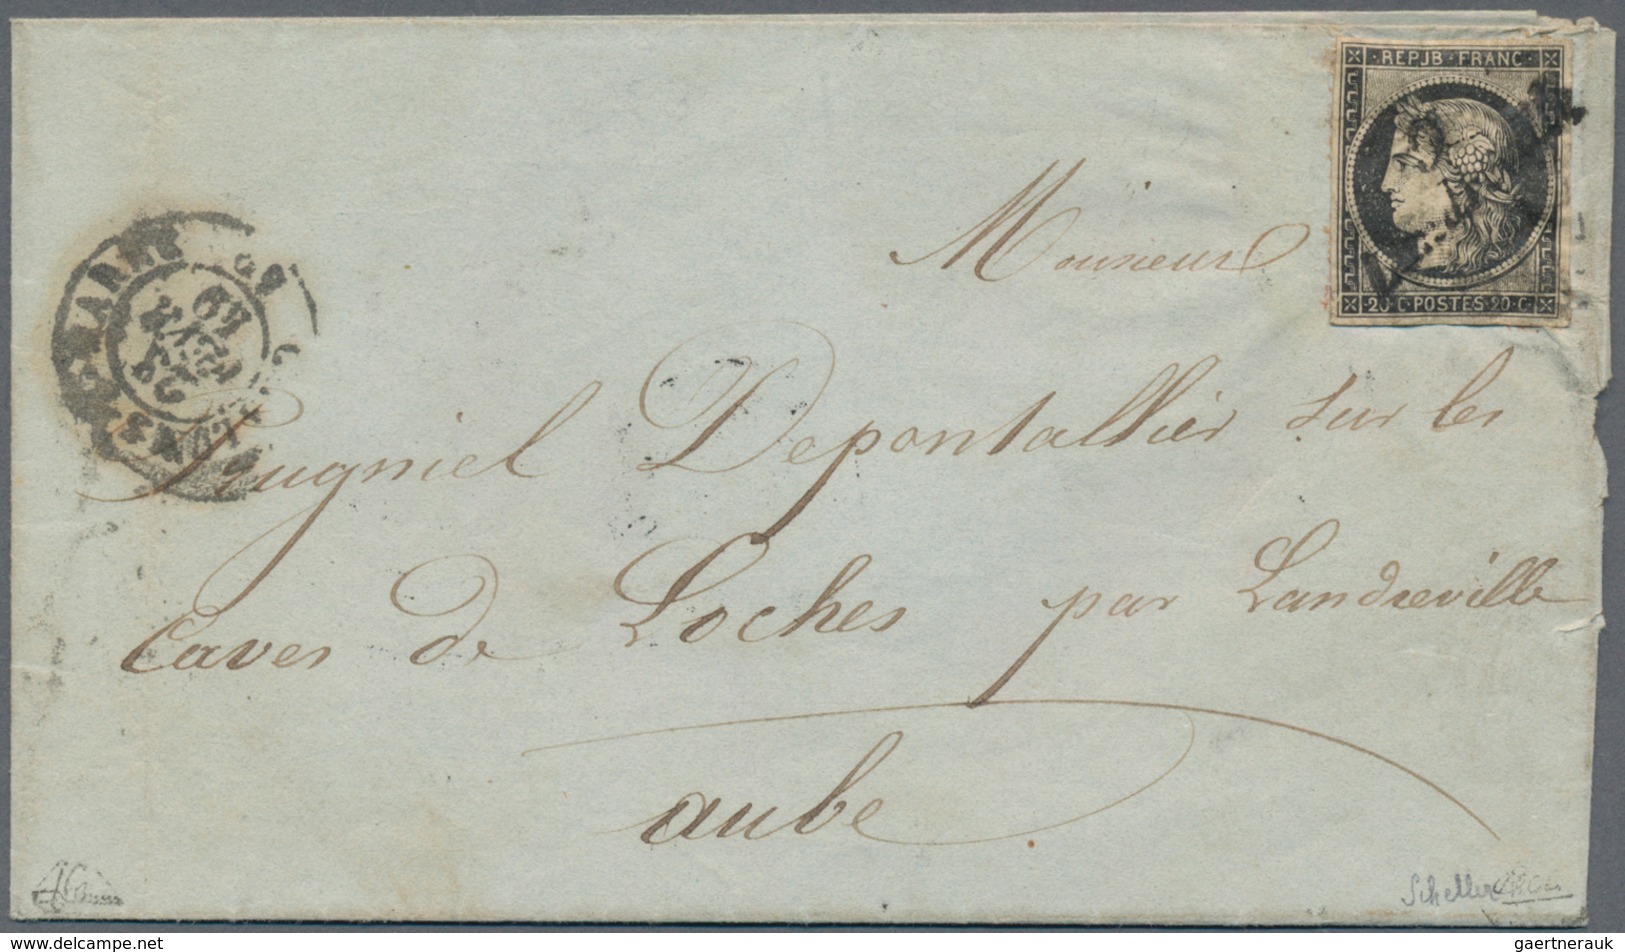 REPUB·FRANC·
20·C·POSTES·20·C·
Monsieur
Pougniel Depontallier sur les
Caves de Loches par Landreville
aube
JANV
49
Scheller
gaertnerauk / www.delcampe.net